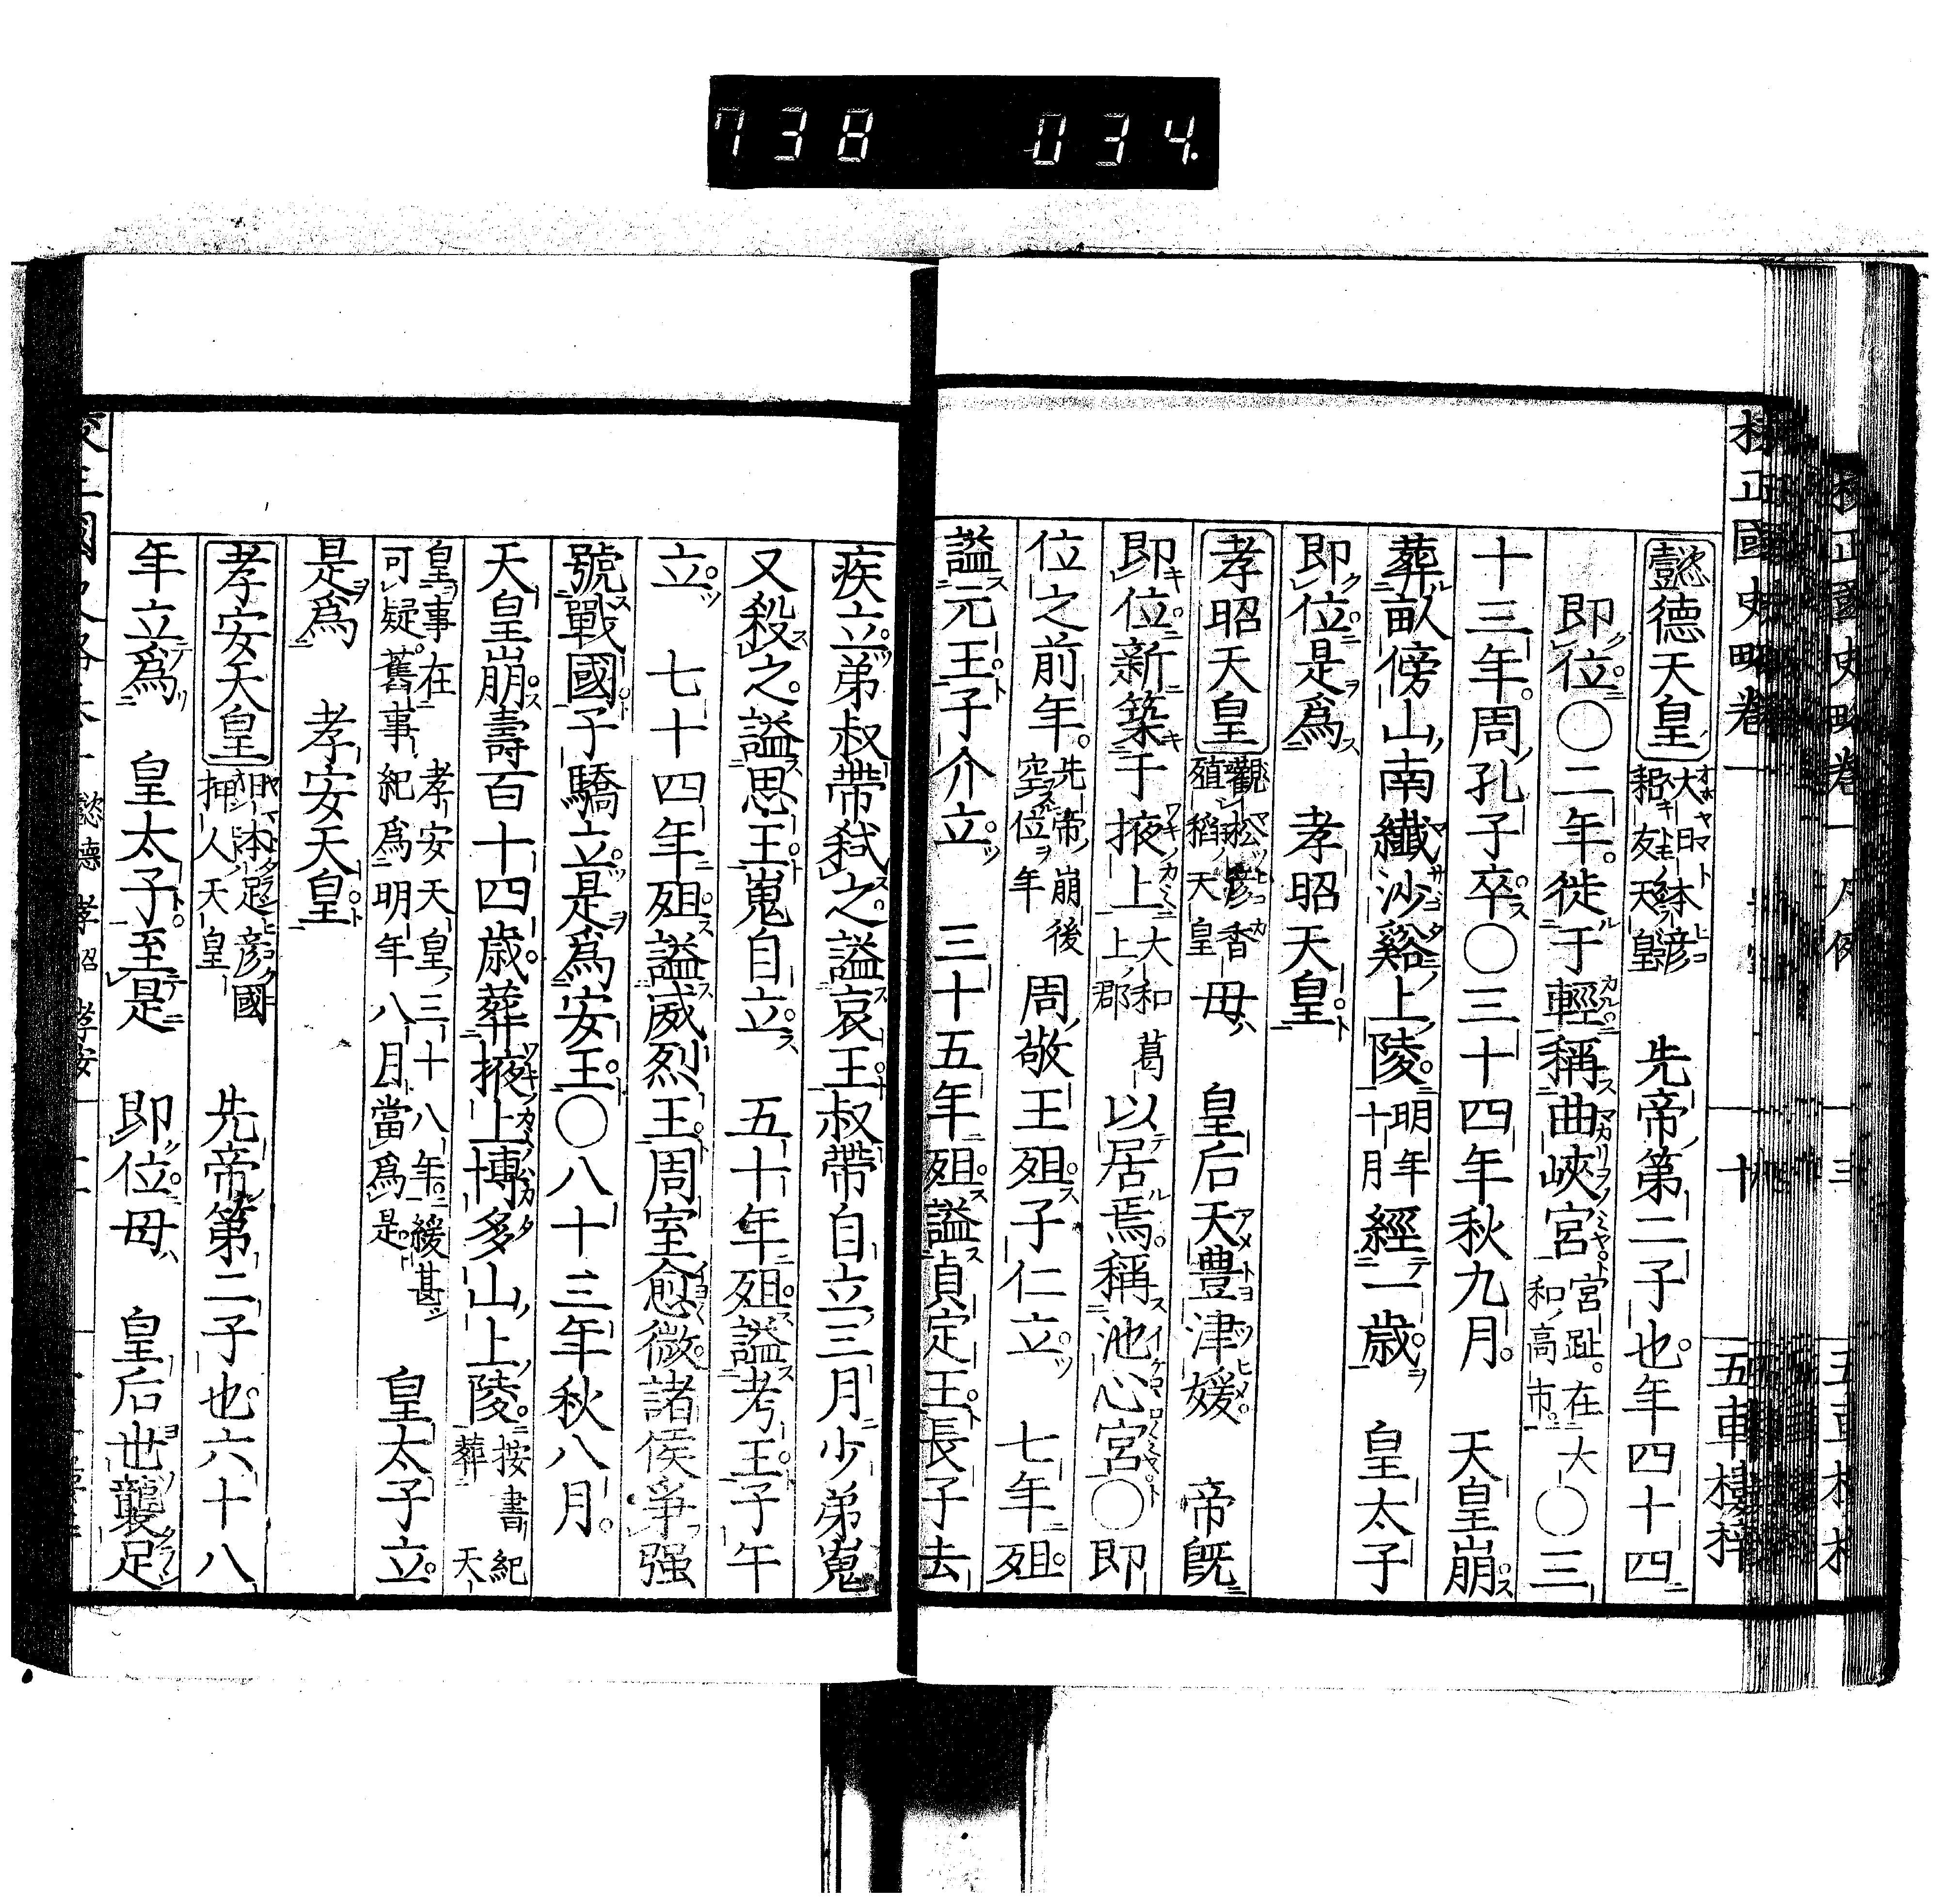 738 034
校正國史略卷一 十 五車樓梓
懿德天皇 大日本彦耜友天皇 先帝第二子也年四十四
即位〇二年徙于輕稱曲峽宮 宮趾在大和高市 〇三
十三年周孔子卒〇三十四年秋九月 天皇崩
葬畝傍山南纖沙谿上陵 明年十月 經一歳 皇太子
即位是爲 孝昭天皇
孝昭天皇 觀松彦香殖稻天皇 母 皇后天豊津媛 帝既
即位新築于掖上 大和葛上郡 以居焉稱池心宮〇即
位之前年 先帝崩後空位年 周敬王殂子仁立 七年殂
謚元王子介立 三十五年殂謚貞定王長子去
疾立弟叔帶弑之謚哀王叔帶自立三月少弟嵬
又殺之謚思王嵬自立 五十年殂謚考王子午
立 七十四年殂謚威烈王周室愈微諸侯爭强
號戰國子驕立是爲安王〇八十三年秋八月
天皇崩壽百十四歳葬掖上博多山上陵 按書紀葬天
皇事在孝安天皇三十八年緩甚可疑舊事紀爲明年八月當爲是 皇太子立
是爲 孝安天皇
孝安天皇 日本足彦國押人天皇 先帝第二子也六十八
年立爲 皇太子至是 即位母 皇后世襲足
懿德 孝昭 孝安